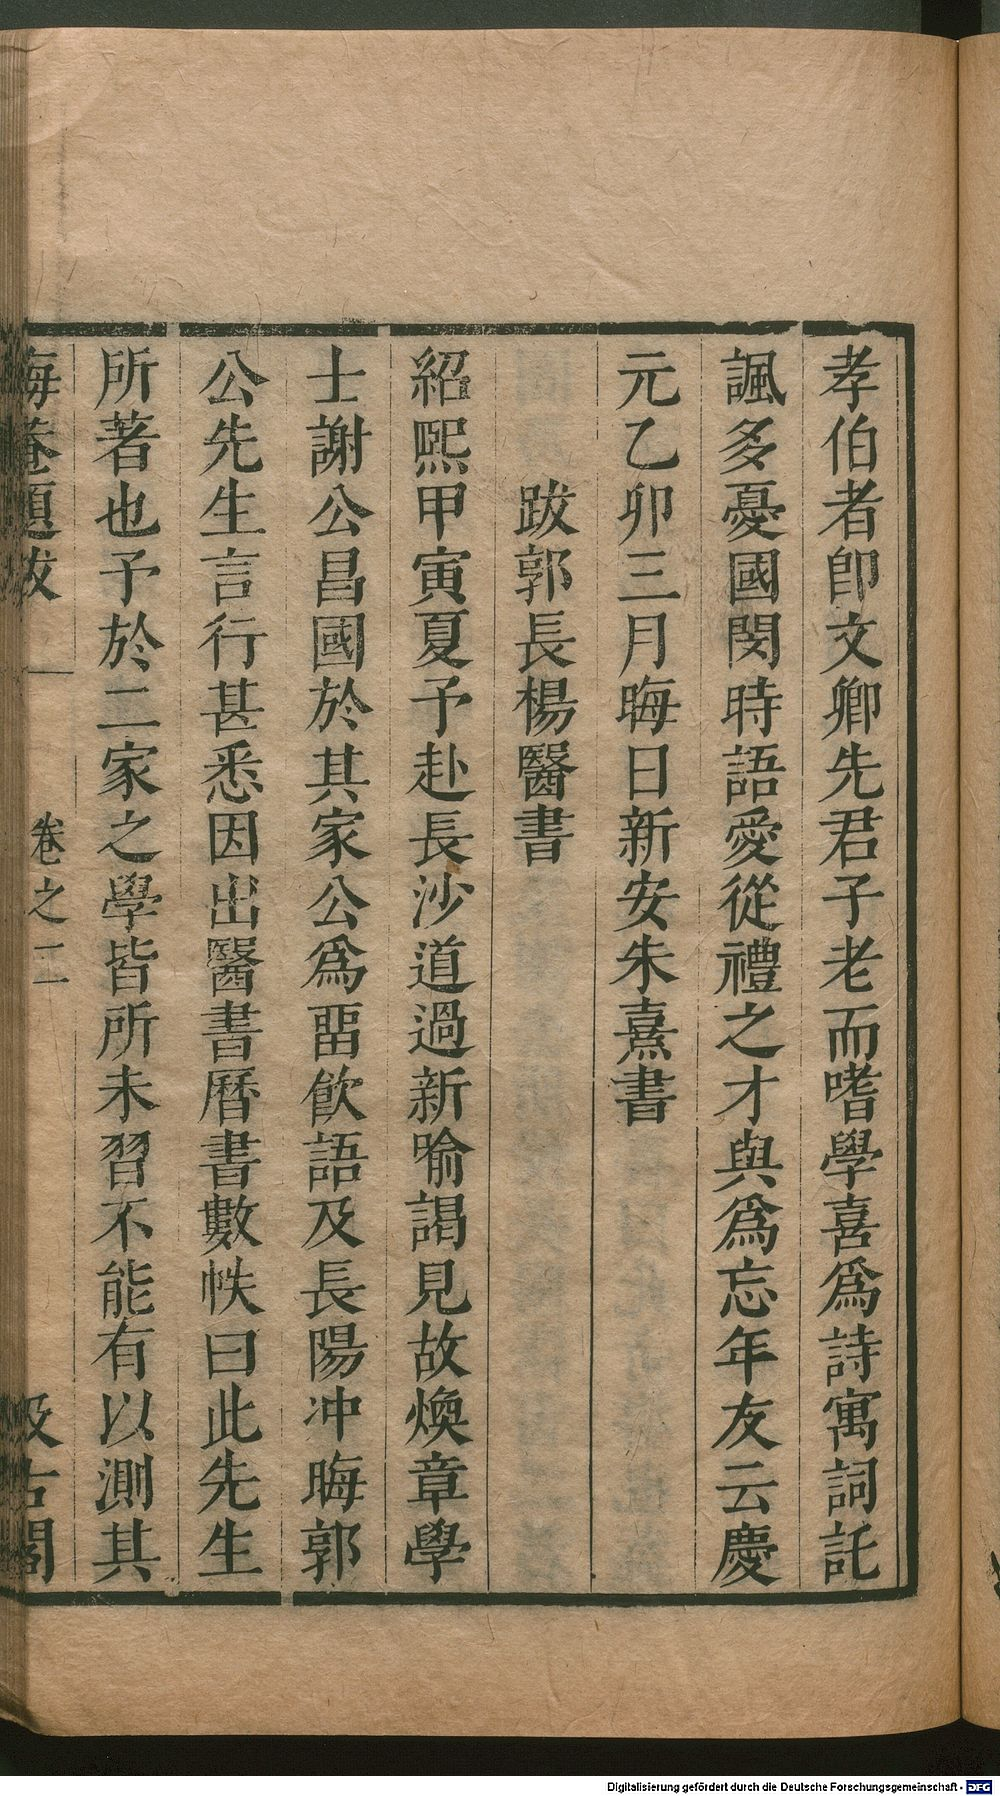 孝伯者卽文卿先君子老而嗜學喜爲詩寓詞託
諷多憂國閔時語愛從禮之才與爲忘年友云慶
元乙卯三月晦日新安朱熹書
跋郭長楊醫書
紹熙甲寅夏予赴長沙道過新喻謁見故煥章學
士謝公昌國於其家公爲畱飮語及長陽冲晦郭
公先生言行甚悉因出醫書曆書數帙曰此先生
所著也予於二家之學皆所未習不能有以測其
海菴題跋 卷之二 汲古閣
Digitalisierung gefördert durch die Deutsche Forschungsgemeinschaft - DFG